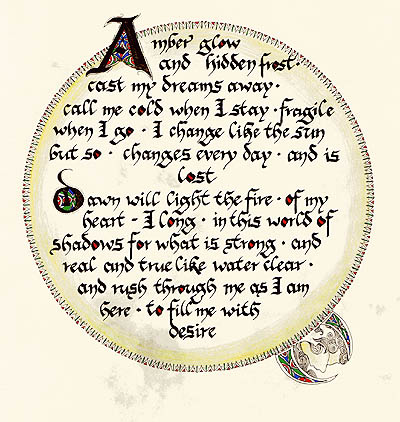 Amber glow
and hidden frost ·
cast my dreams away ·
call me cold when I stay · fragile
when I go · I change like the sun
but so · changes every day · and is
lost
Dawn will light the fire · of my
heart - I long · in this world of
shadows for what is strong · and
real and true like water clear ·
and rush through me as I am
here · to fill me with
desire